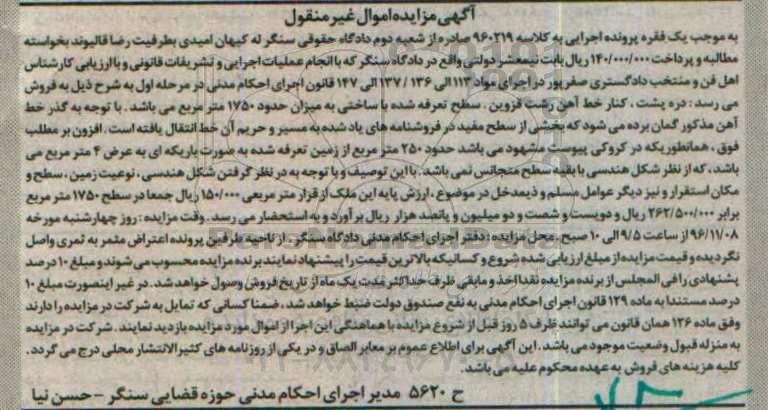 آگهی مزایده اموال غیر منقول
به موجب یک فقره پرونده اجرایی به کلاسه ۹۶۰۲۱۹ صادره از شعبه دوم دادگاه حقوقی سنگر له کیهان امیدی بطرفیت رضا قالیوند بخواسته
مطالبه و پرداخت ۱۴۰/۰۰۰/۰۰۰ ریال بابت نیمعشر دولتی واقع در دادگاه سنگر که با انجام عملیات اجرایی و تشریفات قانونی و با ارزیابی کارشناس
اهل فن و منتخب دادگستری صفرپور در اجرای مواد ۱۱۳ الی ۱۳۶ / ۱۳۷ الی ۱۴۷ قانون اجرای احکام مدنی در مرحله اول به شرح ذیل به فروش
می رسد : دره پشت ، کنار خط آهن رشت قزوین . سطح تعرفه شده با ساختی به میزان حدود ۱۷۵۰ متر مربع می باشد . با توجه به گذر خط
آهن مذکور گمان برده می شود که بخشی از سطح مفید در فروشنامه های یاد شده به مسیر و حریم آن خط انتقال یافته است . افزون بر مطلب
فوق ، همانطوریکه در کروکی پیوست مشهود می باشد حدود ۲۵۰ متر مربع از زمین تعرفه شده به صورت باریکه ای به عرض ۴ متر مربع می
باشد ، که از نظر شکل هندسی با بقیه سطح متجانس نمی باشد . با این توصیف و با توجه به در نظر گرفتن شکل هندسی ، نوعیت زمین ، سطح و
مکان استقرار و نیز دیگر عوامل مسلم و ذیمدخل در موضوع ، ارزش پایه این ملک از قرار متر مربعی ۱۵۰/۰۰۰ ریال جمعا در سطح ۱۷۵۰ متر مربع
برابر ۲۶۲/۵۰۰/۰۰۰ ریال و دویست و شصت و دو میلیون و پانصد هزار ریال برآورد و به استحضار می رسد . وقت مزایده : روز چهارشنبه مورخه
۹۶/۱۱/۰۸ از ساعت ۹/۵ الی ۱۰ صبح محل مزایده : دفتر اجرای احکام مدنی دادگاه سنگر . از ناحیه طرفین پرونده اعتراض مثمر به ثمری واصل
نگردیده و قیمت مزایده از مبلغ ارزیابی شده شروع و کسانیکه بالاترین قیمت را پیشنهاد نمایند برنده مزایده محسوب می شوند و مبلغ ۱۰ درصد
پشنهادی را فی المجلس از برنده مزایده نقدا اخذ و مابقی ظرف حداکثر مدت یک ماه از تاریخ فروش وصول خواهد شد . در غیر اینصورت مبلغ ۱۰
درصد مستندا به ماده ۱۲۹ قانون اجرای احکام مدنی به نفع صندوق دولت ضبط خواهد شد ، ضمنا کسانی که تمایل به شرکت در مزایده را دارند
وفق ماده ۱۲۶ همان قانون می توانند ظرف ۵ روز قبل از شروع مزایده با هماهنگی این اجرا از اموال مورد مزایده بازدید نمایند . شرکت در مزایده
به منزله قبول وضعیت موجود می باشد . این آگهی برای اطلاع عموم بر معابر الصاق و در یکی از روزنامه های کثیرالانتشار محلی درج می گردد .
کلیه هزینه های فروش به عهده محکوم علیه می باشد .
ح ۵۶۲۰ مدیر اجرای احکام مدنی حوزه قضایی سنگر – حسن نیا